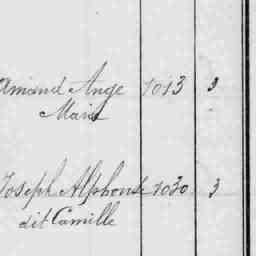 Amand Ange 1013 3
Marie
Joseph Alphonse 1030 3
dit Camille